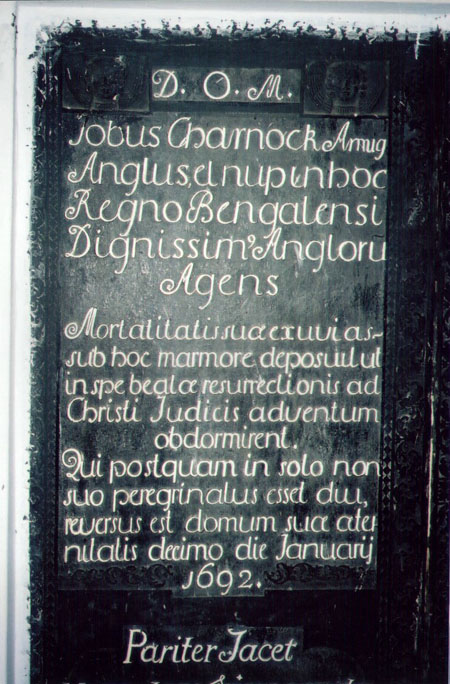 D. O. M.
Jobus Charnock Armig
Anglus, et nup in hoc
Regno Bengalensi
Dignissimꝰ Angloru
Agens
Mortalitatis suæ exuvias
sub hoc marmore deposuit ut
in spe beatæ resurrectionis ad
Christi Judicis adventum
obdormirent.
Qui postquam in solo non
suo peregrinatus esset diu,
reversus est domum suæ æter
nitatis decimo die Januarij
1692.
Pariter Jacet